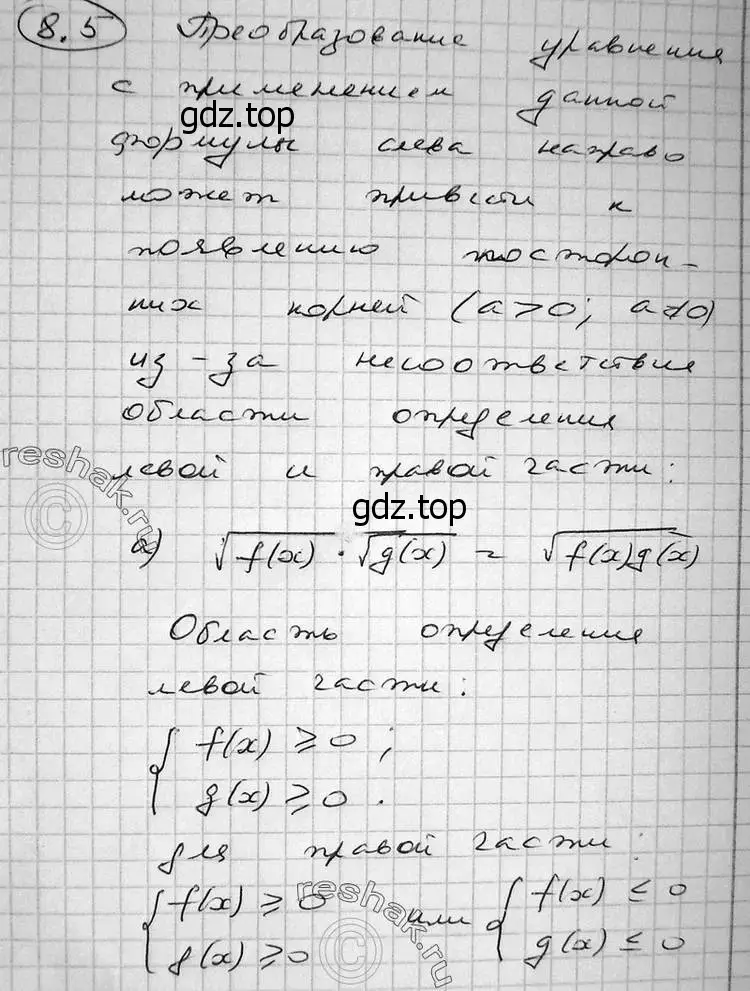 8.5 Преобразование уравнения
с применением данной
gdz.top
формулы слева направо
может привести к
появлению посторон-
них корней (a>0; a≠0)
из-за несоответствия
области определения
левой и правой части:
reshak.ru
gdz.top
а) √f(x) · √g(x) = √f(x)g(x)
Область определения
левой части:
{ f(x) ≥ 0;
g(x) ≥ 0.
для правой части:
{ f(x) ≥ 0 или { f(x) ≤ 0
g(x) ≥ 0 g(x) ≤ 0
reshak.ru